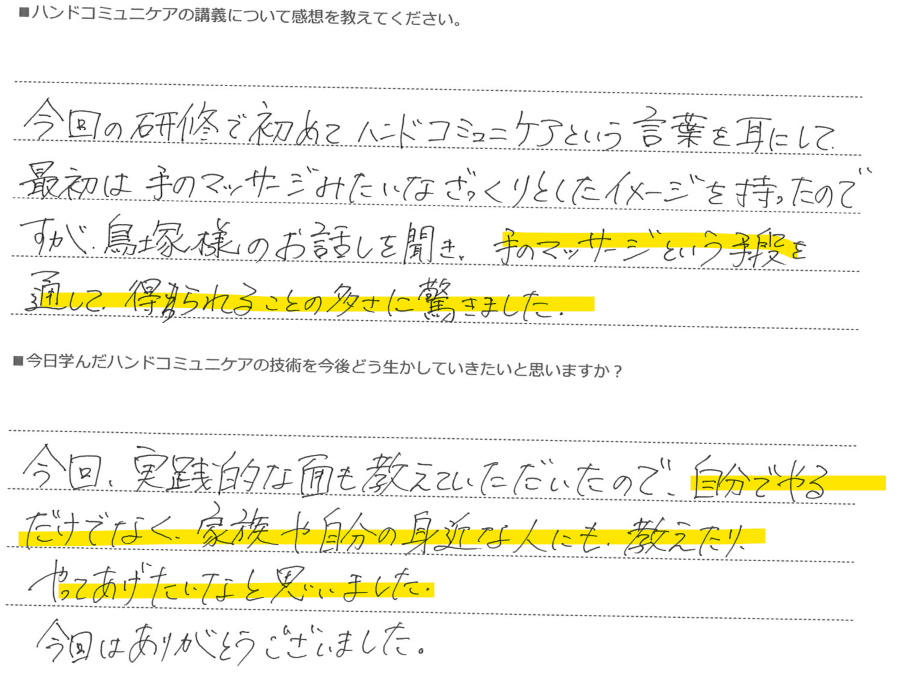 ■ハンドコミュニケアの講義について感想を教えてください。
今回の研修で初めてハンドコミュニケアという言葉を耳にして、
最初は手のマッサージみたいなざっくりとしたイメージを持ったので
すが、鳥塚様のお話しを聞き、手のマッサージという手段を
通して、得られることの多さに驚きました。
■今日学んだハンドコミュニケアの技術を今後どう生かしていきたいと思いますか？
今回、実践的な面も教えていただいたので、自分でやる
だけでなく、家族や自分の身近な人にも、教えたり、
やってあげたいなと思いました。
今回はありがとうございました。